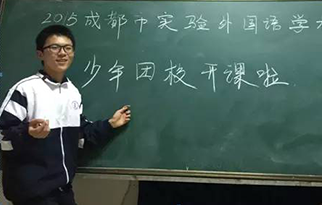 2015成都市实验外国语学
少年团校开课啦